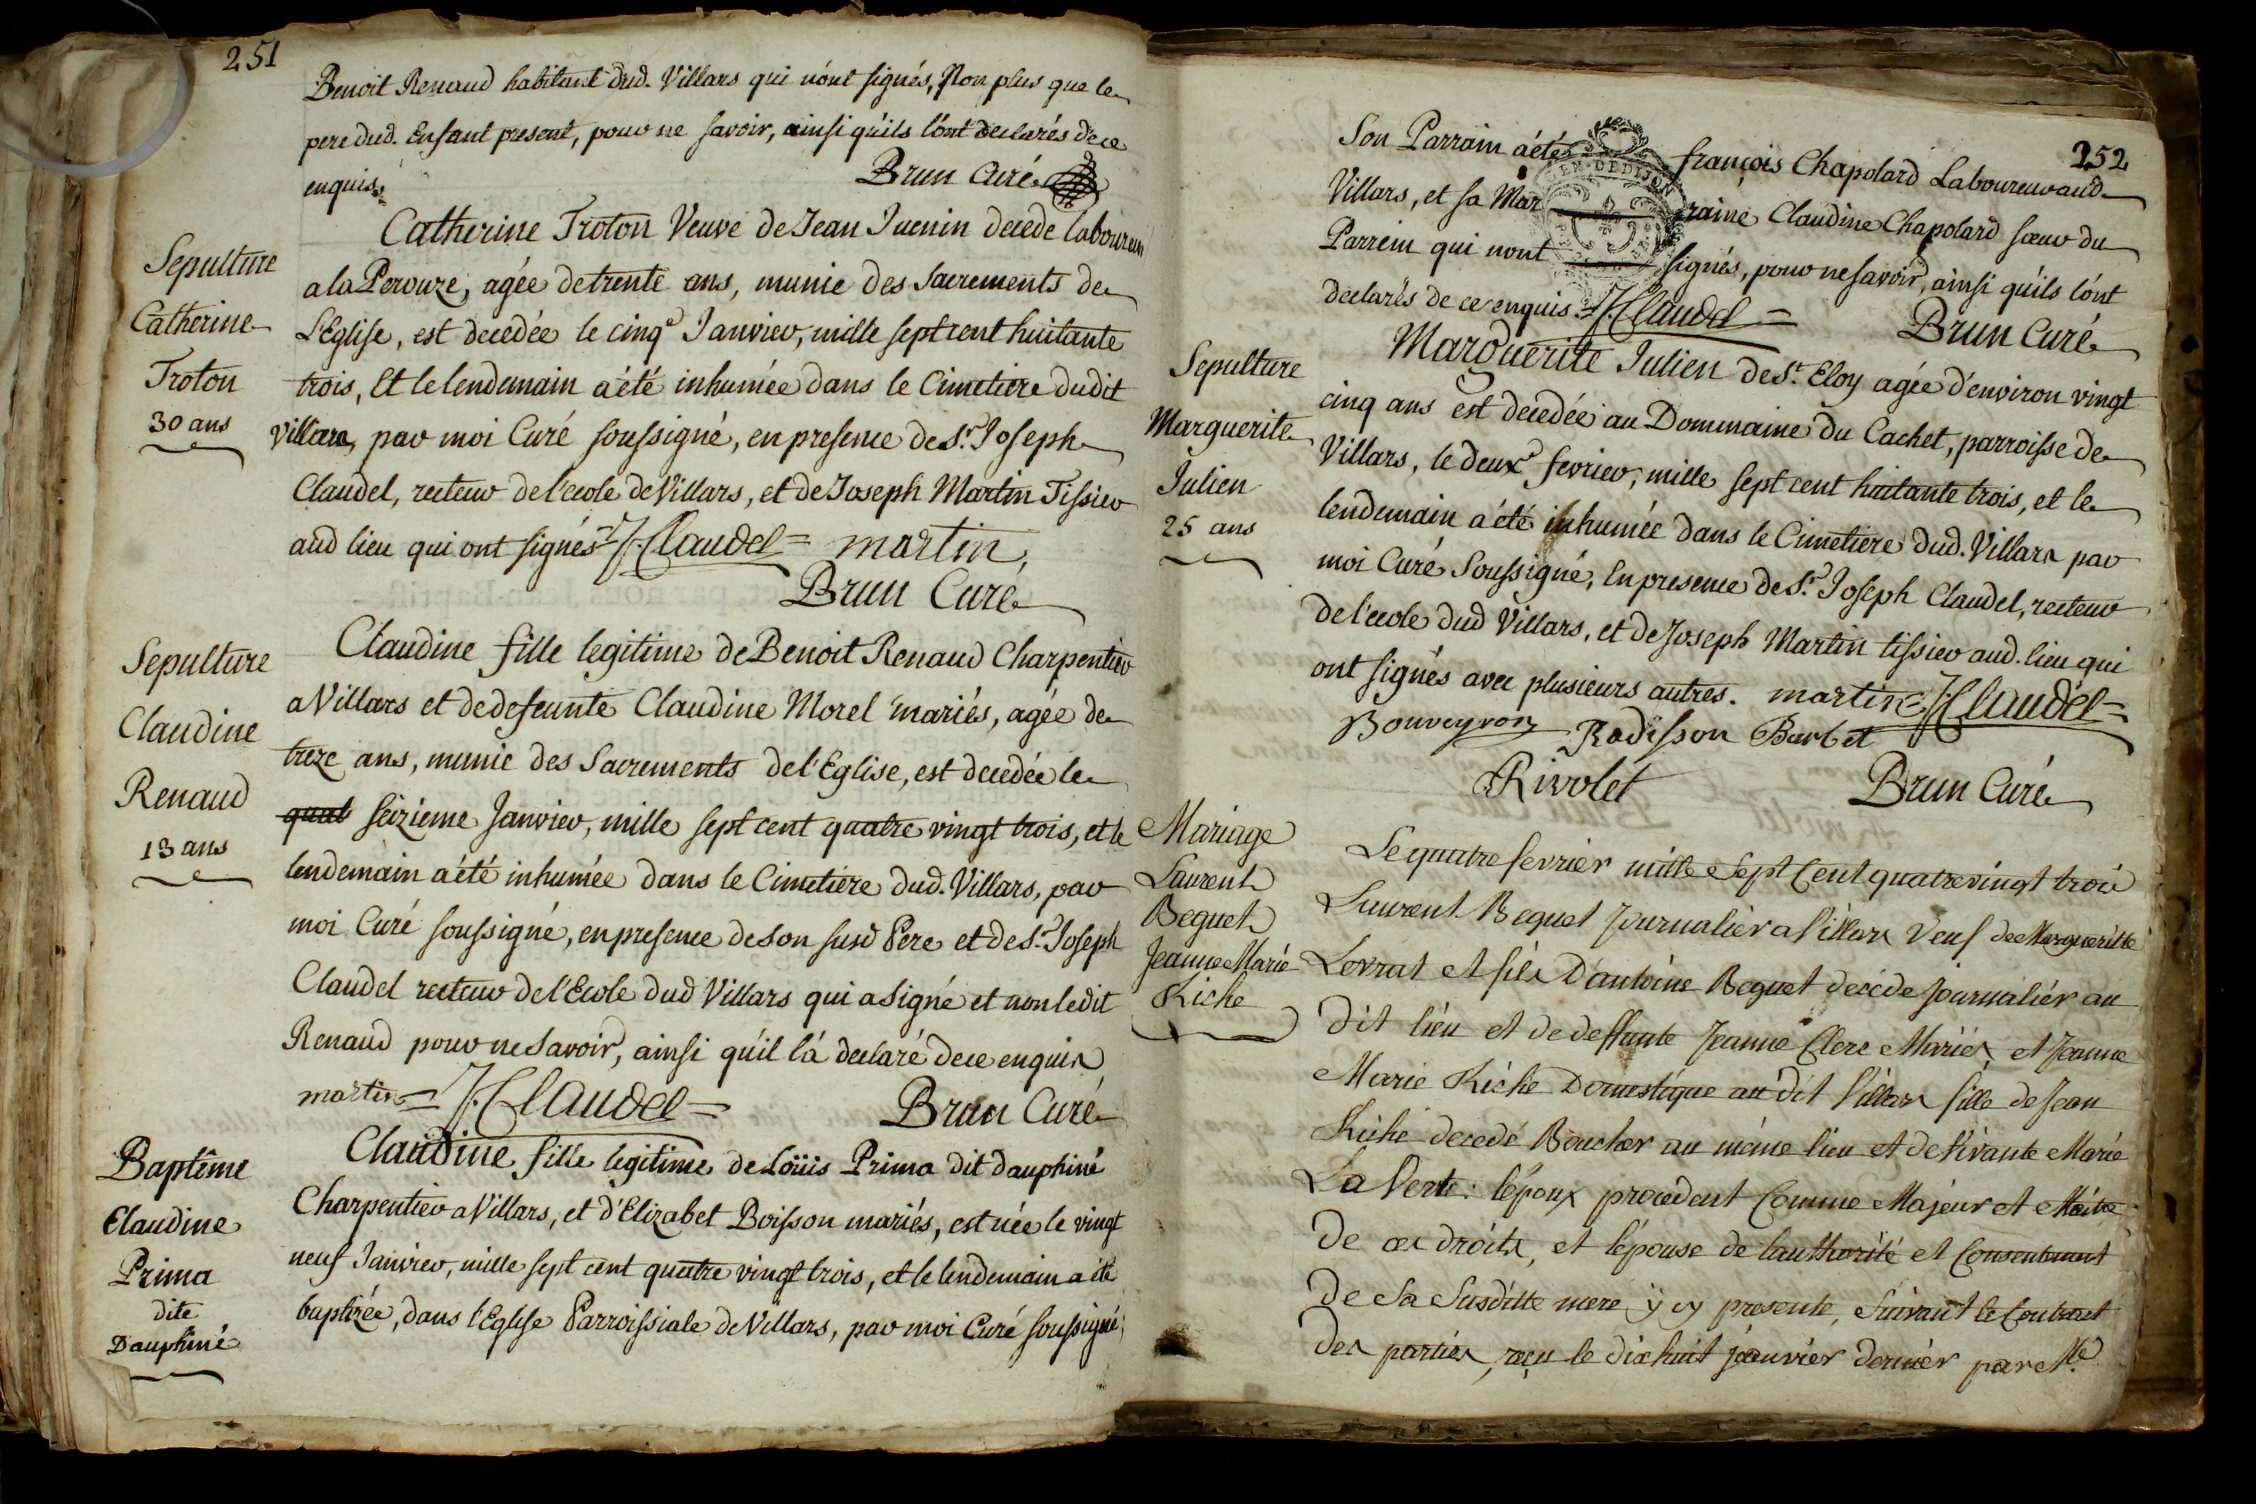 251
Benoit Renaud habitant dud. Villars qui nónt signés, Non plus que le
pere dud. Enfant present, pour ne savoir, ainsi qu'ils l'ónt declarés de ce
enquis. Brun Curé
Sepulture
Catherine
Troton
30 ans
Catherine Troton Veuve de Jean Juenin decede laboureur
a la Perouze, agée de trente ans, munie des Sacrements de
L'Eglise, est decedée le cinqe Janvier, mille sept cent huitante
trois, Et le lendemain a été inhumée dans le Cimetiere dudit
Villars, par moi Curé soussigné, en presence de Sr. Joseph
Claudel, recteur de l'ecole de Villars, et de Joseph Martin Tissier
aud lieu qui ont signés = J. Claudel = martin,
Brun Curé
Sepulture
Claudine
Renaud
13 ans
Claudine fille legitime de Benoit Renaud Charpentier
a Villars et de defeunte Claudine Morel mariés, agée de
treze ans, munie des Sacrements de l'Eglise, est decedée le
quat seizieme Janvier, mille sept cent quatre vingt trois, et le
lendemain a été inhumée dans le Cimetiere dud. Villars, par
moi Curé soussigné, en presence de son susd Pere et de Sr. Joseph
Claudel recteur de l'Ecole dud Villars qui a signé et non ledit
Renaud pour ne Savoir, ainsi qu'il l'á declaré de ce enquis
martin = J. Claudel = Brun Curé
Baptême
Claudine
Prima
dite
Dauphiné
Claudine fille legitime de Loüis Prima dit dauphiné
Charpentier a Villars, et d'Elizabet Boisson mariés, est née le vingt
neuf Janvier, mille sept cent quatre vingt trois, et le lendemain a été
baptizée, dans l'Eglise Parroissiale de Villars, par moi Curé soussigné,
252
Son Parrain a étés françois Chapolard Laboureur aud
Villars, et sa Mar raine Claudine Chapolard sœur du
EN. DE DIJON
Parrein qui nont signés, pour ne savoir, ainsi qu'ils l'ónt
declarés de ce enquis = J. Claudel = Brun Curé
Sepulture
Marguerite
Julien
25 ans
Marguerite Julien de St. Eloy agée d'environ vingt
cinq ans est decedée au Dommaine du Cachet, parroisse de
Villars, le deuxe fevrier, mille sept cent huitante trois, et le
lendemain a été inhumée dans le Cimetiere dud. Villars par
moi Curé Soussigné, En presence de Sr. Joseph Claudel, recteur
de l'ecole dud Villars, et de Joseph Martin tissier aud. lieu qui
ont signés avec plusieurs autres. martin = J. Claudel =
Bouveyron Radisson Burbet
Rivolet Brun Curé
Mariage
Laurent
Beguet
Jeanne Marie
Kiche
Le quatre fevrier mille Sept Cent quatre vingt trois
Laurent Beguet Journalier a Villars Veuf de Margueritte
Levrat et fils D'antoine Beguet decede journaliér au
dit lieu et de deffunte Jeanne Clerc Mariés, et Jeanne
Marie Kiche Domestique au dit Villars fille de Jean
Kiche decedé Boucher au même lieu et de Vivante Marie
La Verte: l'époux procedent Comme Majeur et Maitre
De ces droits, et l'épouse de l'authorité et Consentement
De Sa Susditte mere y cy presente, Suivant le Contract
Des parties, reçu le dix huit janvier dernier par Me